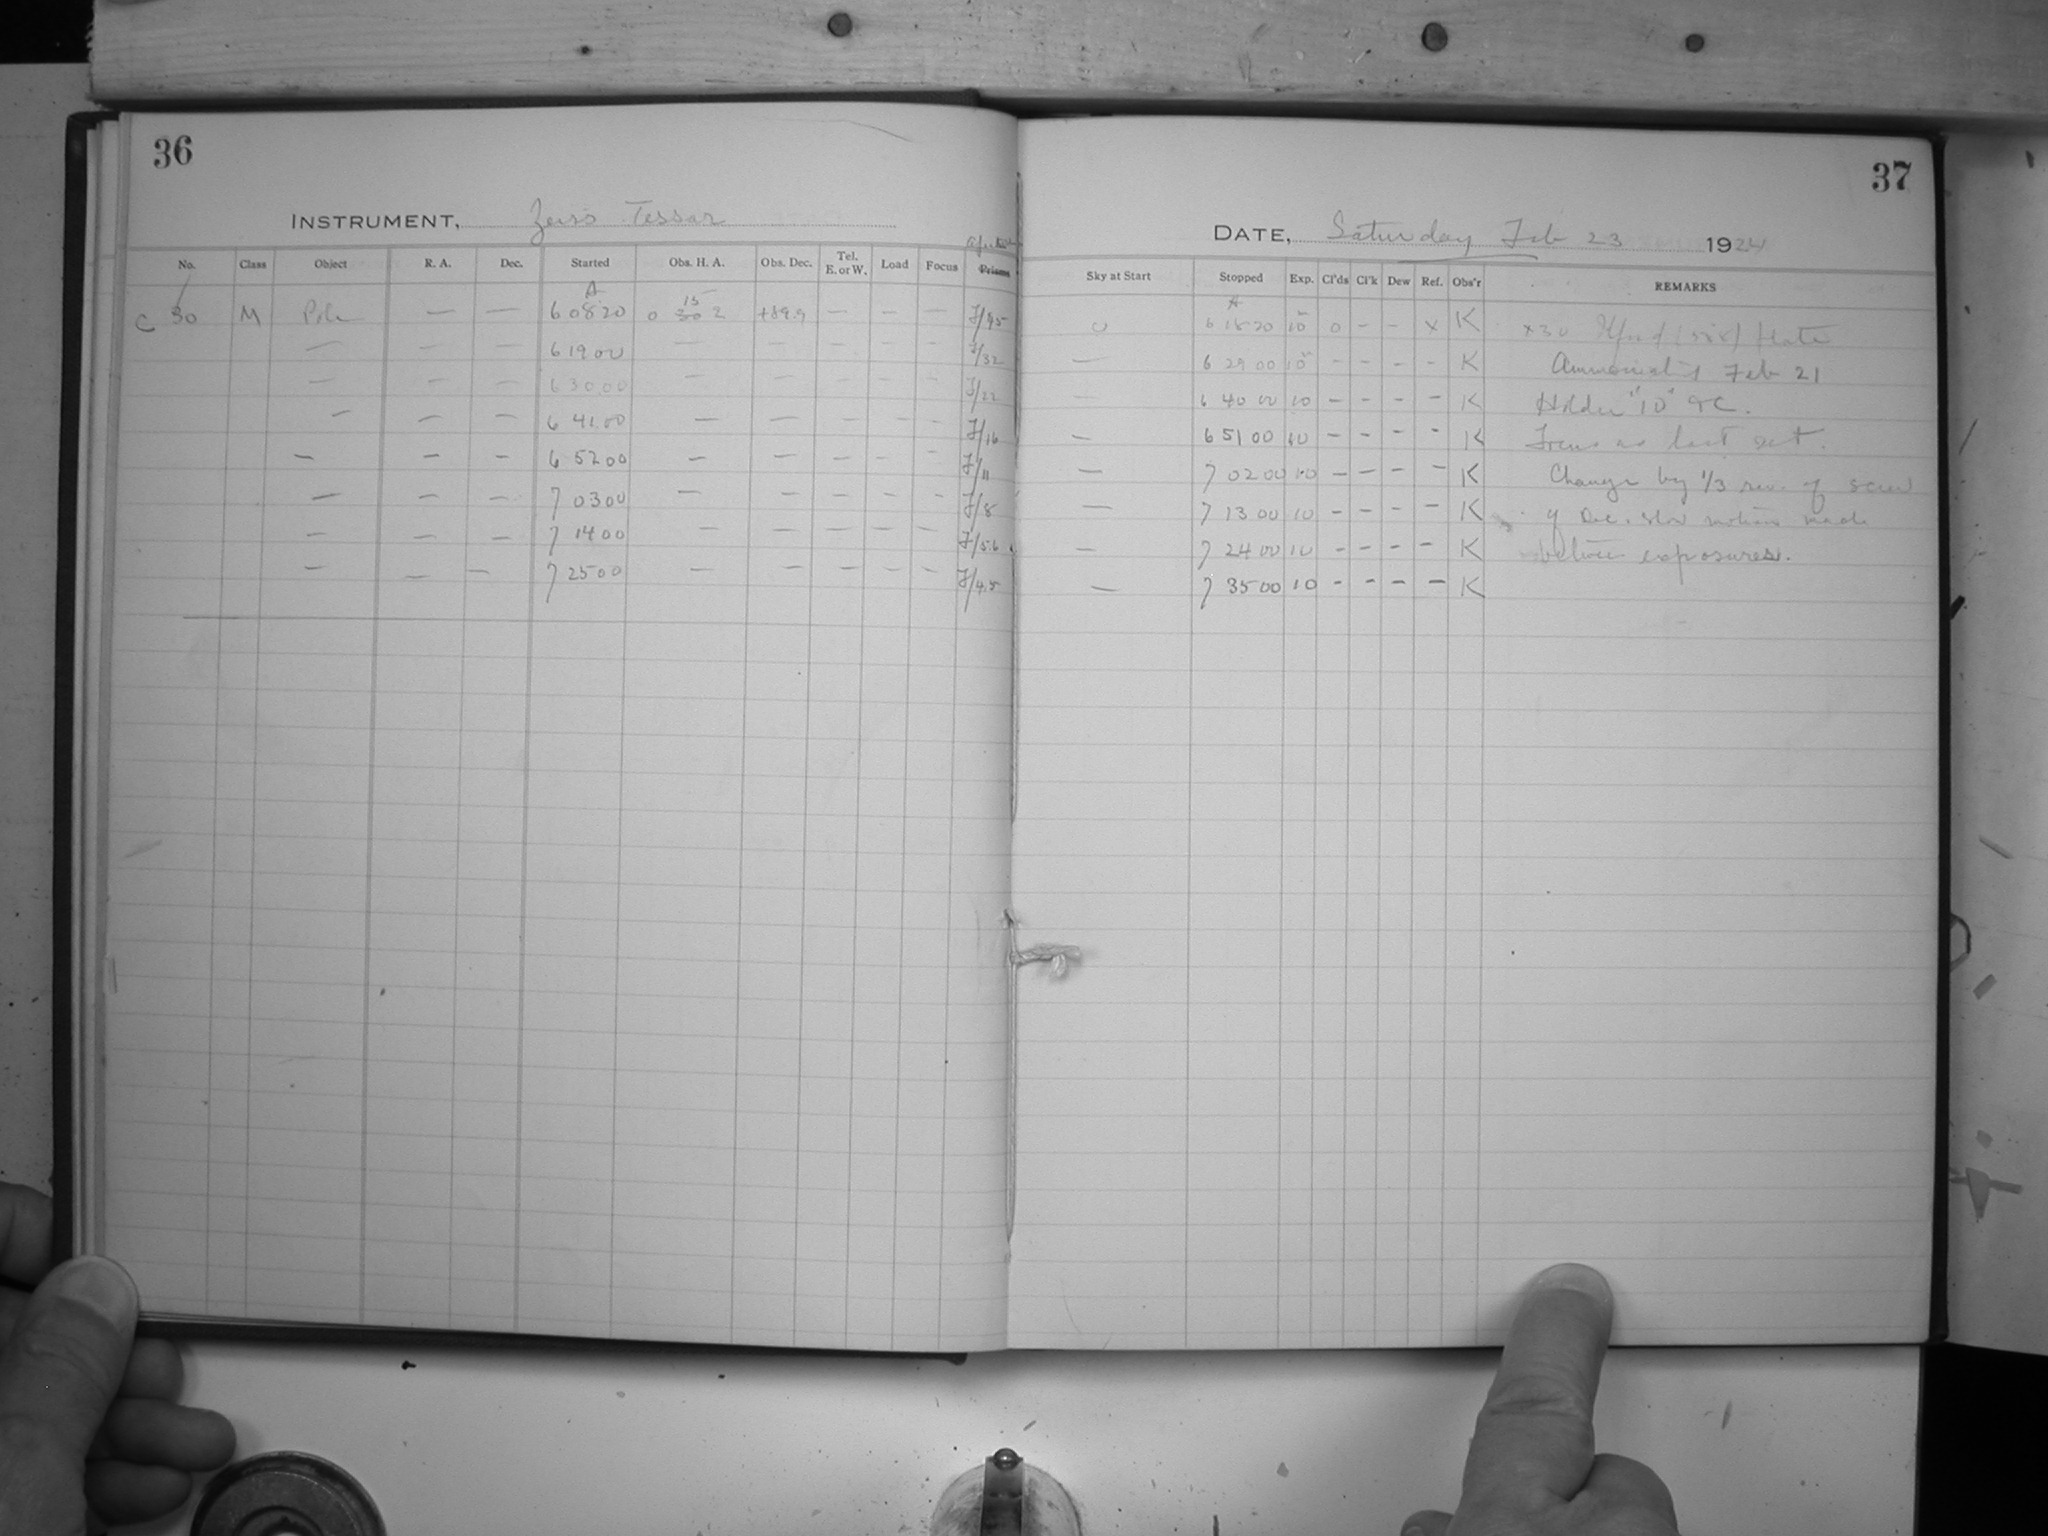 36
INSTRUMENT, Zeiss Tessar
No. Class Object R. A. Dec. Started Obs. H. A. Obs. Dec. Tel. E. or W. Load Focus Prisms
A
C 30 M Pole — — 6 08 20 0 30 15 2 +89.9 — — — F/45
— — — 6 19 00 — — — — — F/32
— — — 6 30 00 — — — — — F/22
— — — 6 41 00 — — — — — F/16
— — — 6 52 00 — — — — — F/11
— — — 7 03 00 — — — — — F/8
— — — 7 14 00 — — — — — F/5.6
— — — 7 25 00 — — — — — F/4.5
37
DATE, Saturday Feb 23 1924
Sky at Start Stopped Exp. Cl'ds Cl'k Dew Ref. Obs'r REMARKS
A
0 6 18 20 10 0 - - x K x30 (5x8) plate
— 6 29 00 10 - - - - K Ammoniated Feb 21
— 6 40 00 10 - - - - K Holder "10" 9C.
— 6 51 00 10 - - - - K Focus as last set.
— 7 02 00 10 - - - - K Change by 1/3 rev. of screw
— 7 13 00 10 - - - - K of Dec. slow motion made
— 7 24 00 10 - - - - K between exposures.
— 7 35 00 10 - - - - K